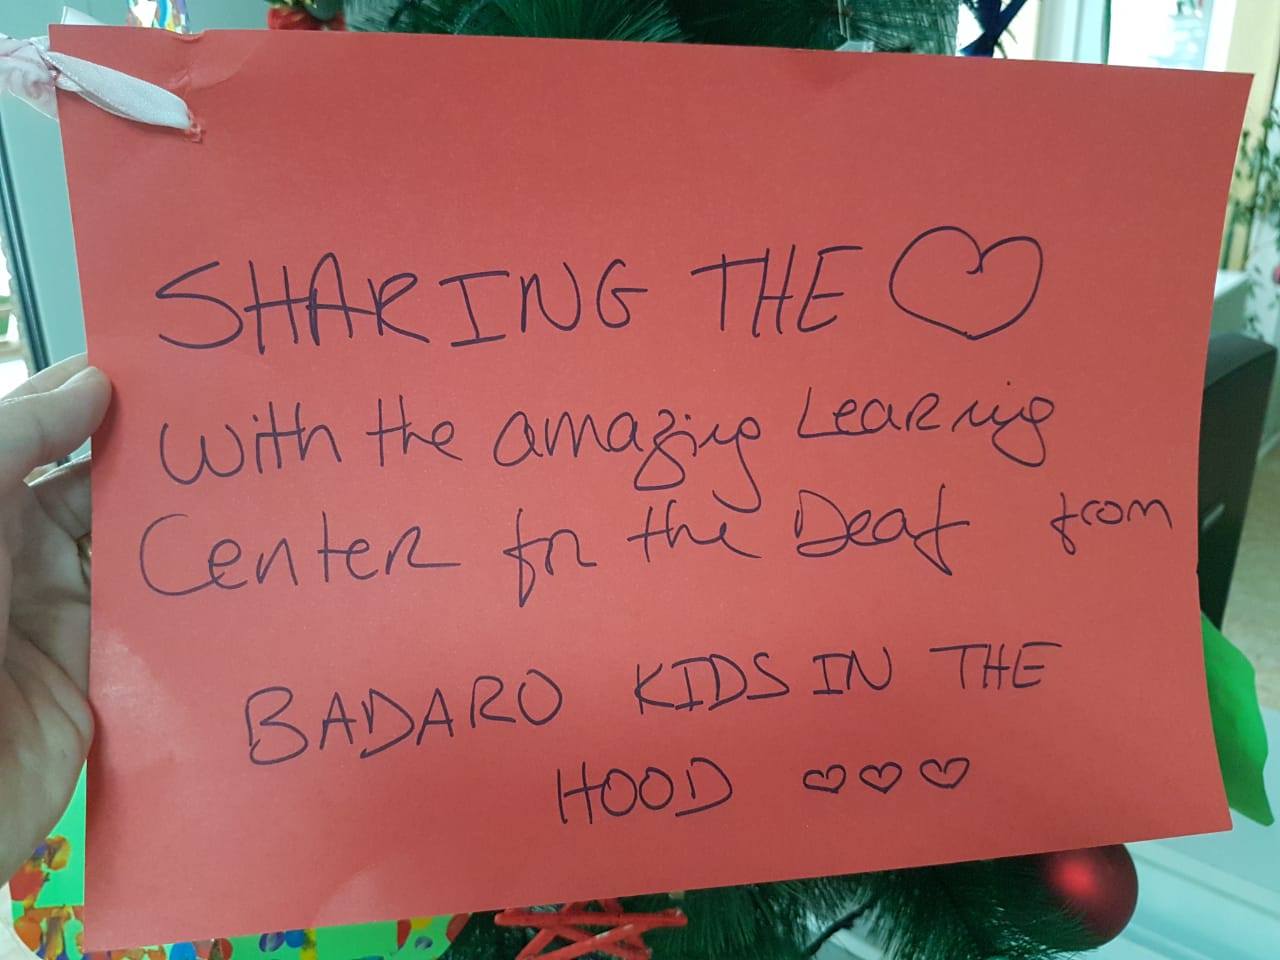 SHARING THE ♡
with the amazing Learning
Center for the Deaf from
BADARO KIDS IN THE
HOOD ♡♡♡